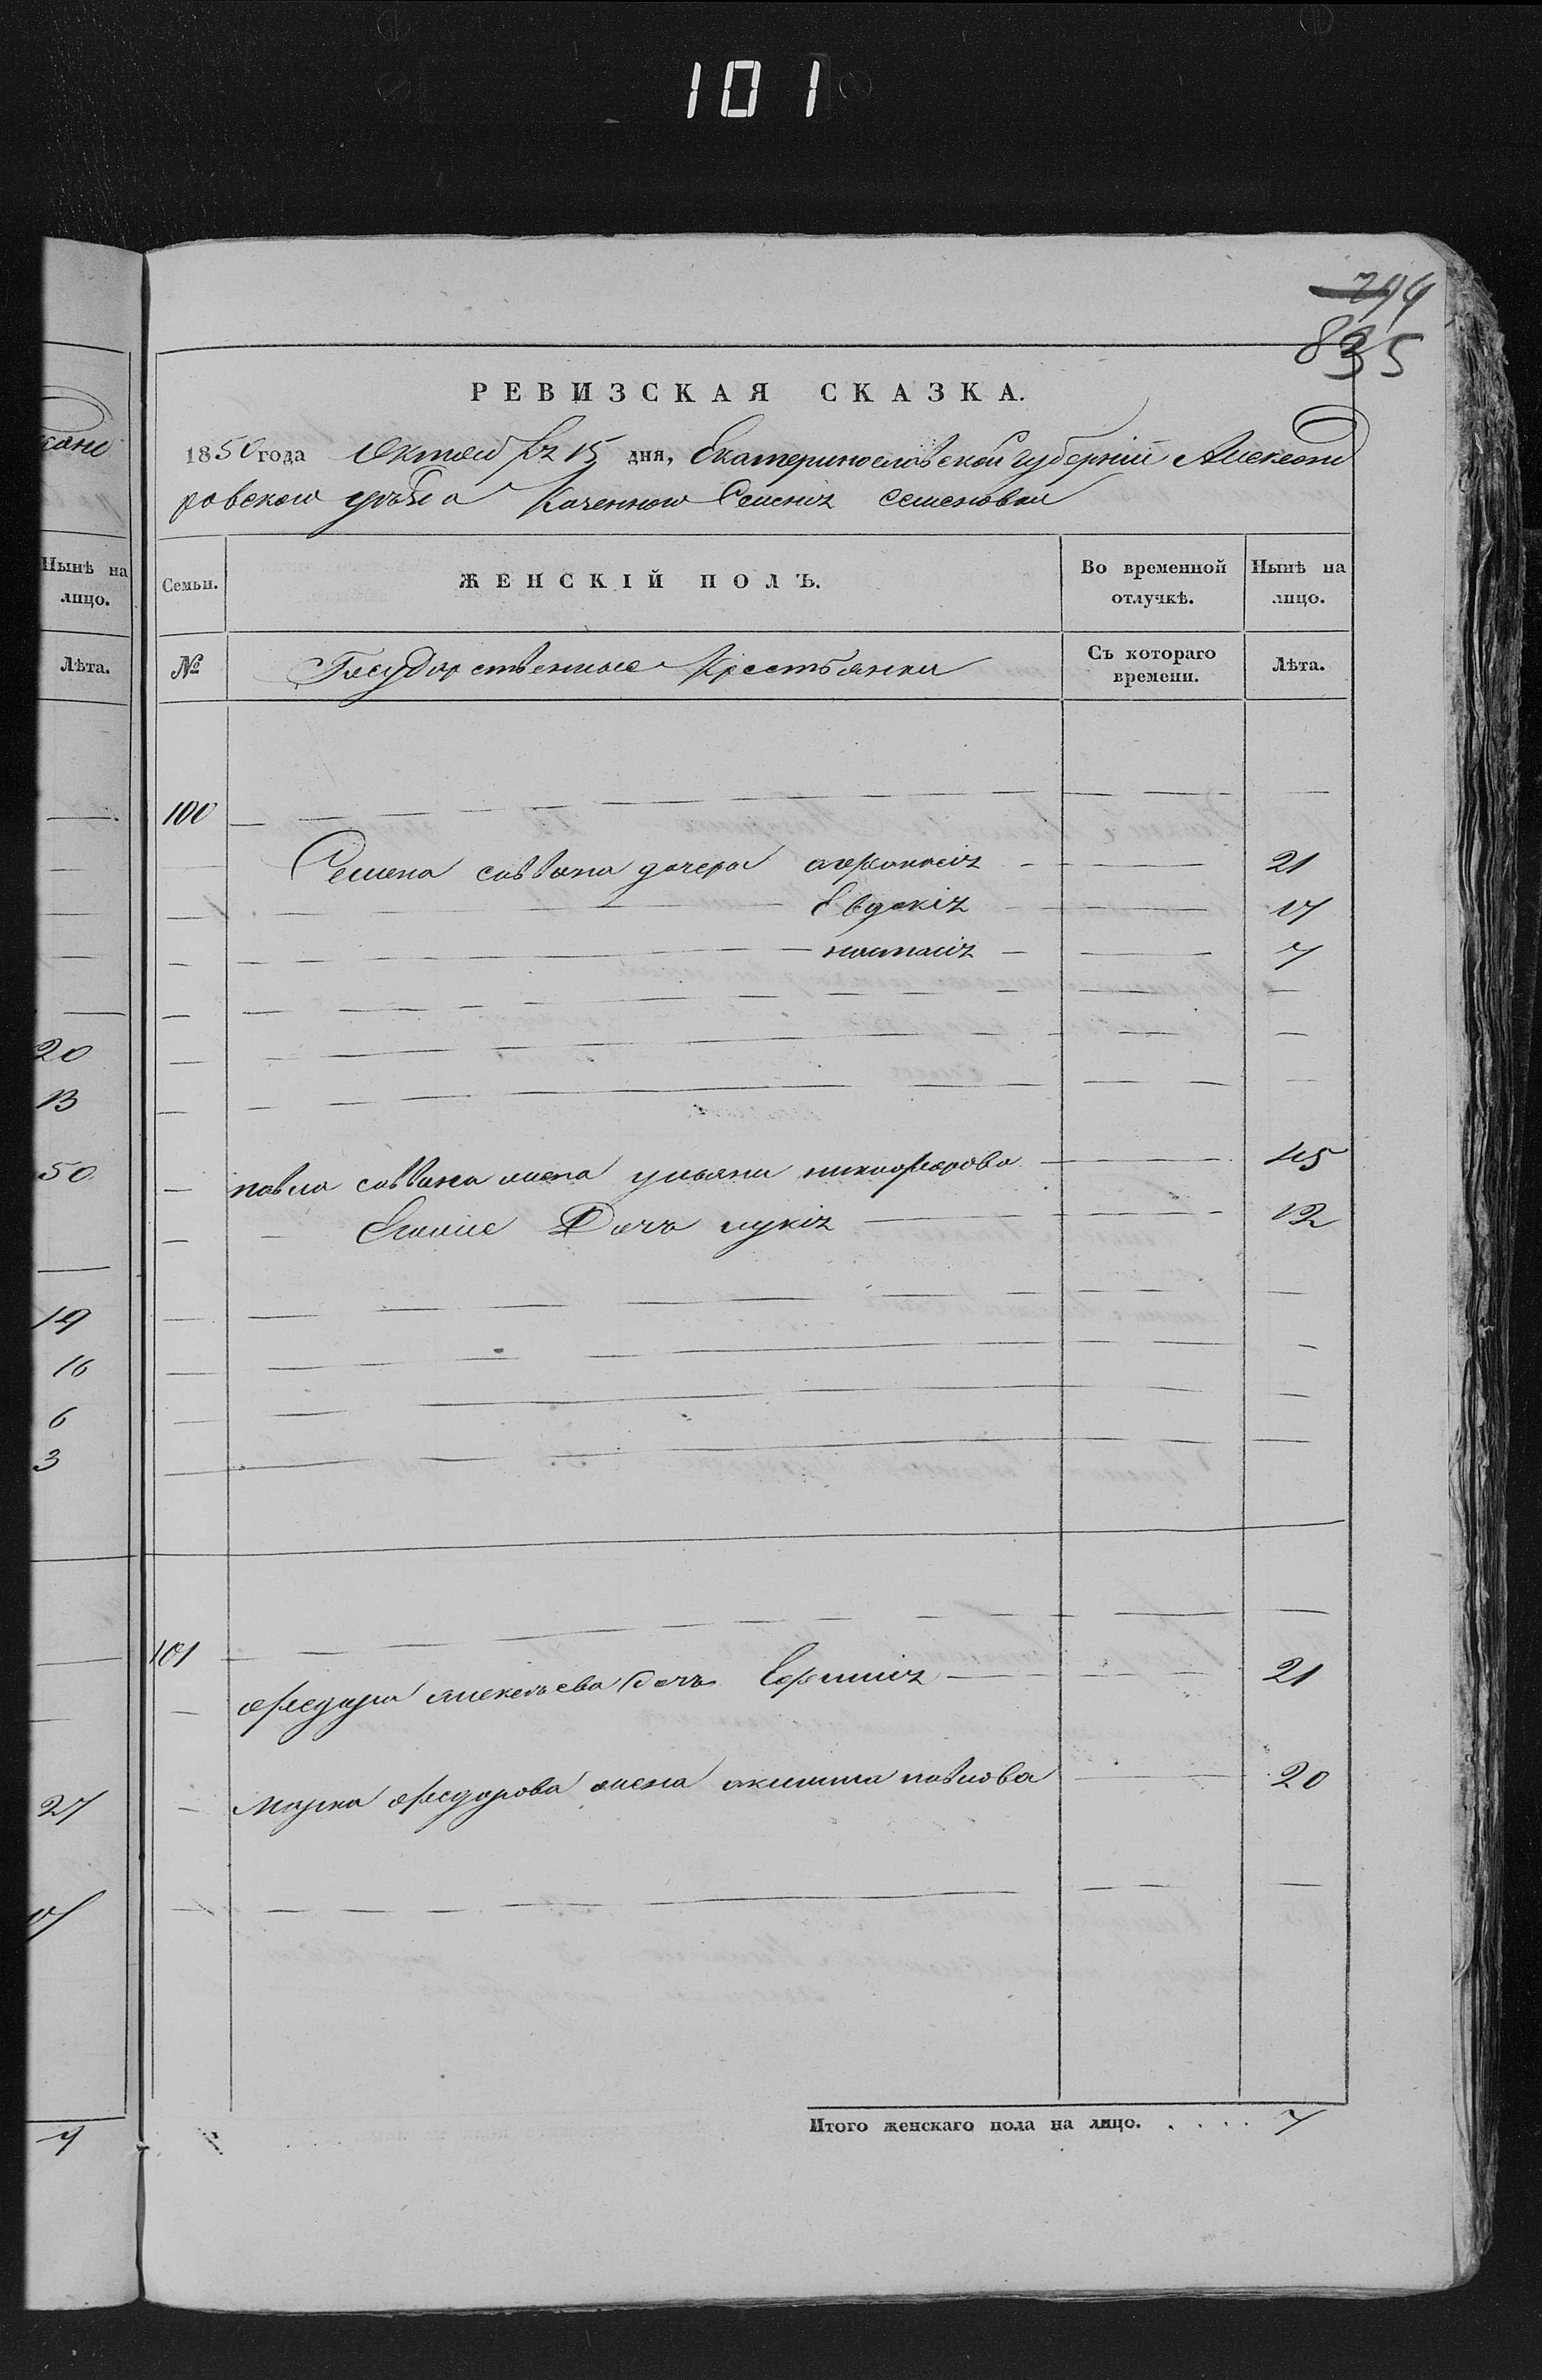 101
294
835
РЕВИЗСКАЯ СКАЗКА.
1850 года Октяб 15 дня, Екатеринославской Губерніи Александ
ровского уезда Казенного Селенія Семеновки
Семьи.
ЖЕНСКІЙ ПОЛЪ.
Во временной отлучкѣ.
Нынѣ на лицо.
№
Государственные Крестьянки
Съ котораго времени.
Лѣта.
100
Семена саввина дочери афанасія 21
Евдокія 17
настасія 7
павла саввина жена ульяна никифорова 45
Егоже Дочь лукія 12
101
федора алексѣева дочь Ефимія 21
Марка федорова жена акилина павлова 20
Итого женскаго пола на лицо. . . . . 7
Нынѣ на лицо.
Лѣта.
20
13
50
19
16
6
3
27
17
9